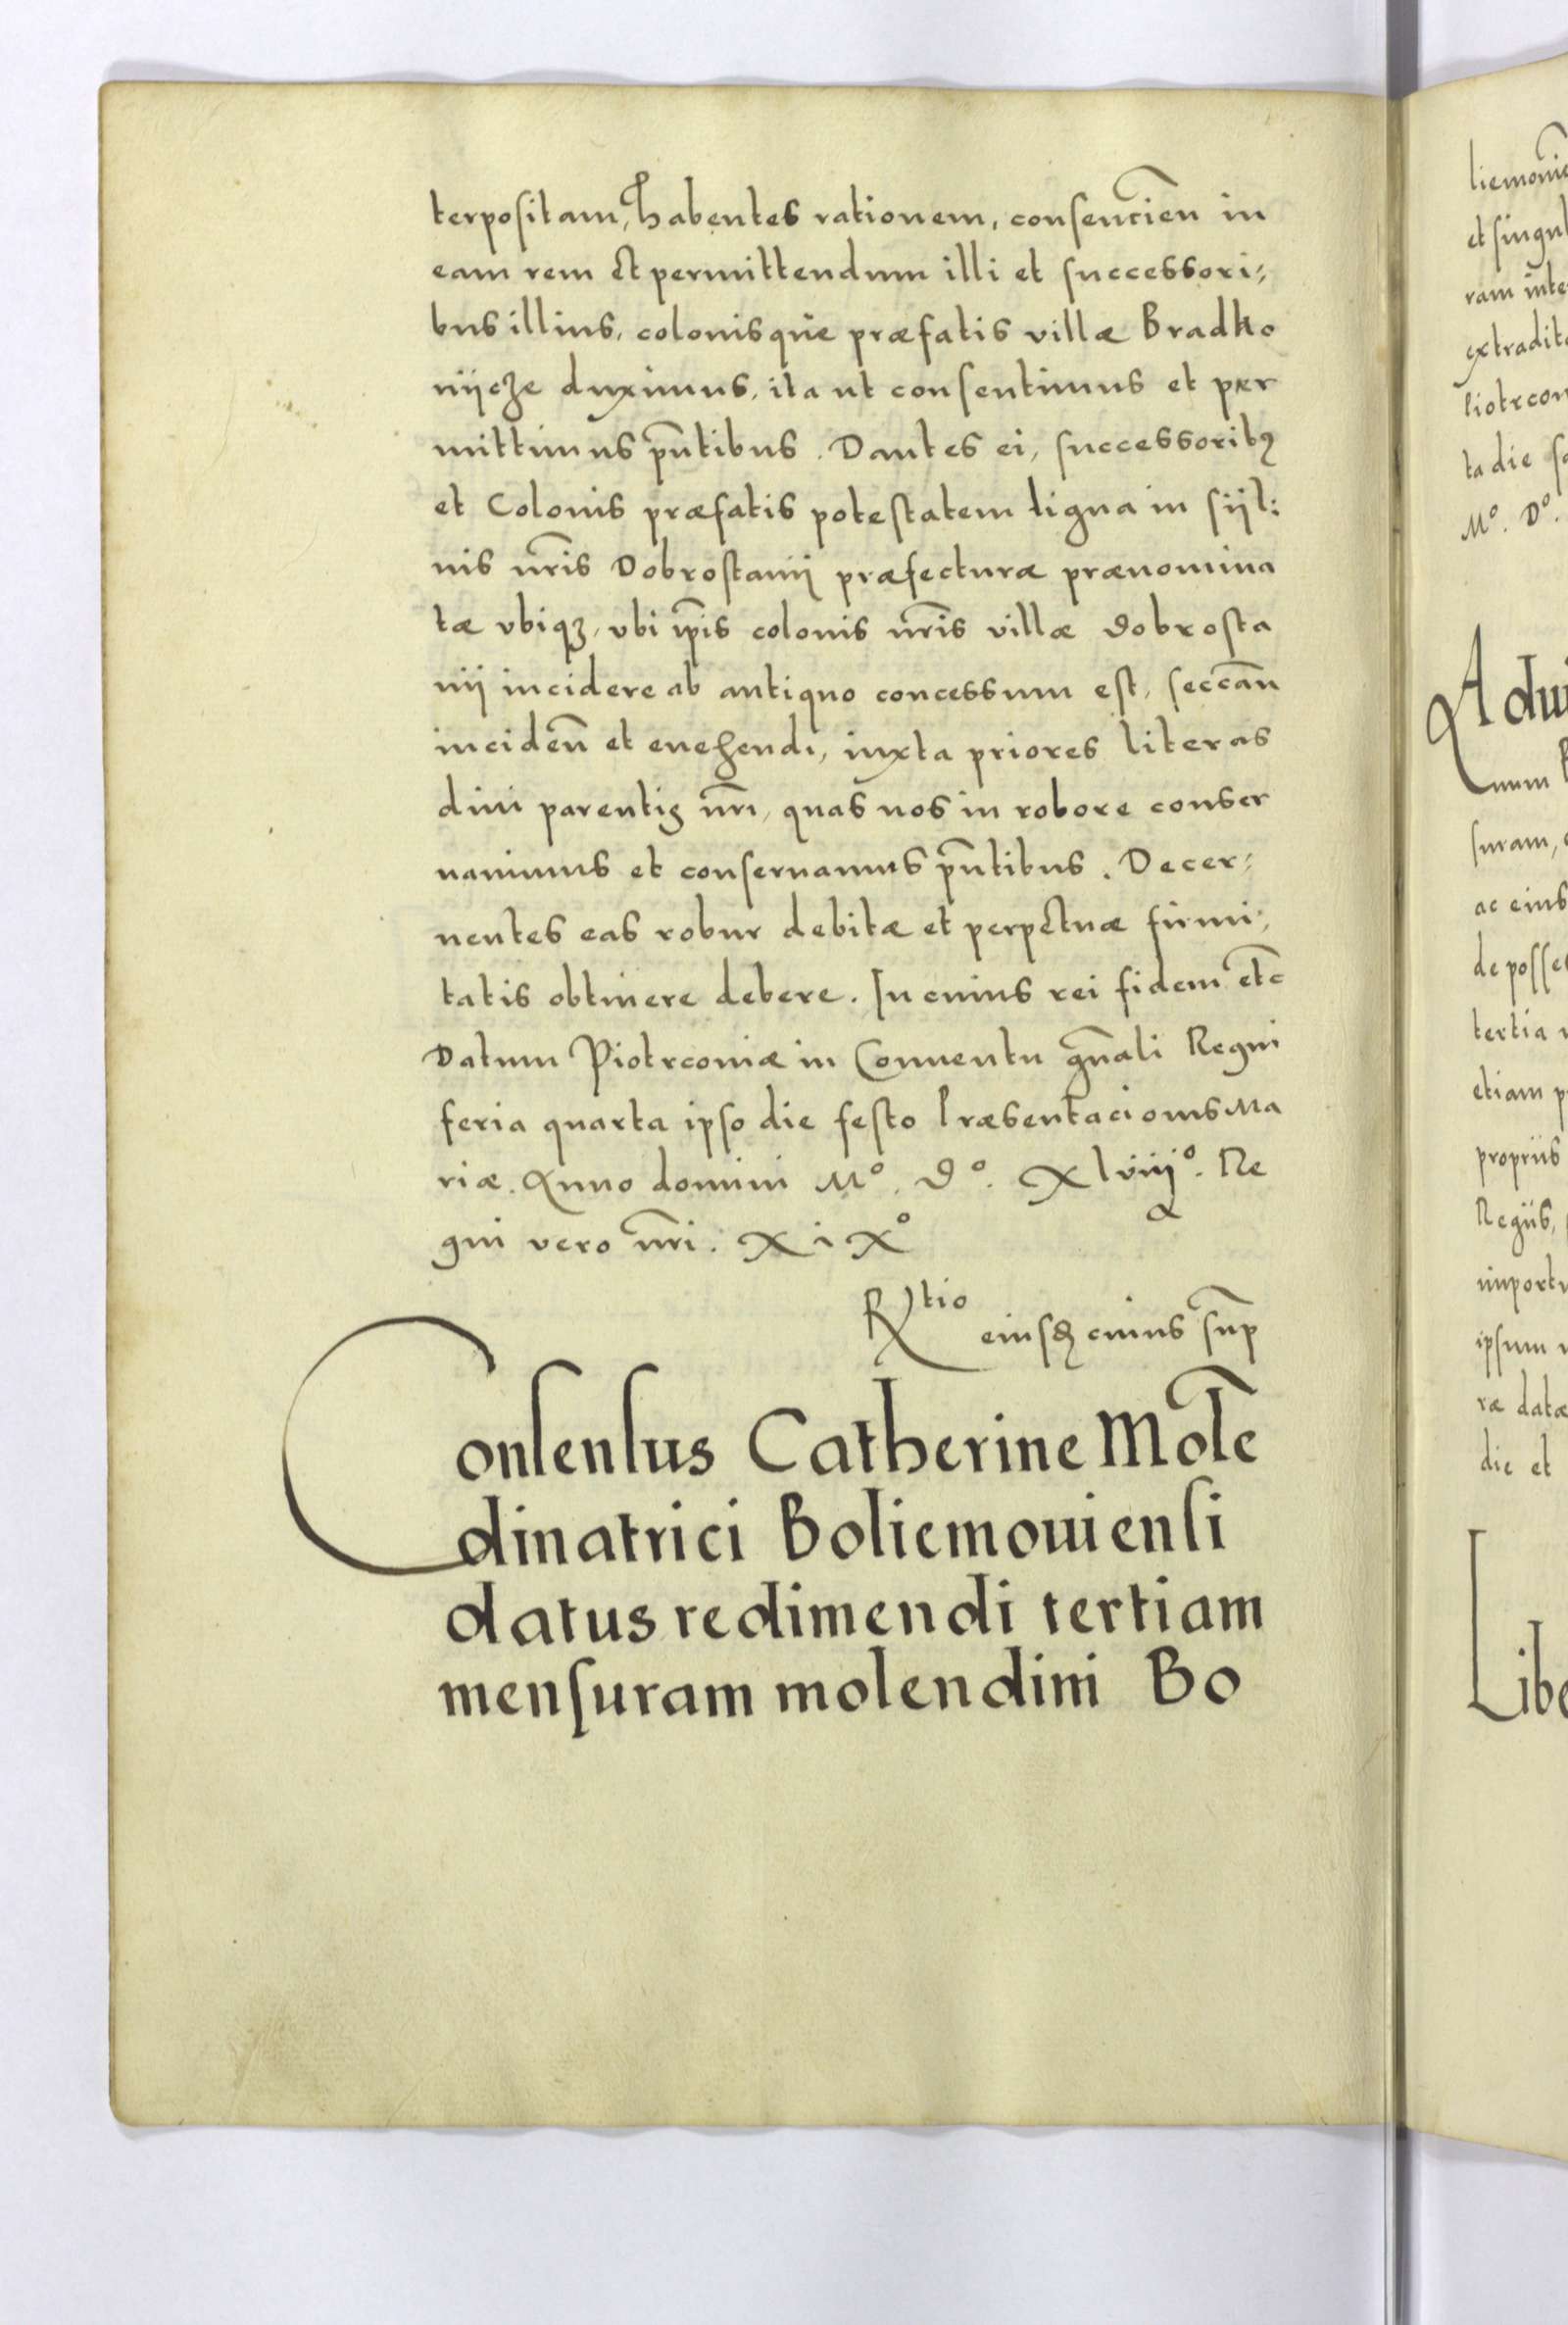 terpositam, habentes rationem, consencien̄ in
eam rem et permittendum illi et successori⸗
bus illius, colonisque præfatis villæ Bradko
niicze duximus, ita ut consentimus et per
mittimus pn̄tibus. Dantes ei, successoribꝫ
et Colonis præfatis potestatem ligna in siil:
uis nr̄is Dobrostanij præfecturæ prænomina
tæ vbiqꝫ, vbi ip̄is colonis nr̄is villæ dobrosta
nij incidere ab antiquo concessum est, seccān
inciden̄ et euehendi, iuxta priores literas
diui parentis nr̄i, quas nos in robore conser
uauimus et conseruamus pn̄tibus. Decer⸗
nentes eas robur debitæ et perpetuæ firmi⸗
tatis obtinere debere. In cuius rei fidem etc̄
Datum Piotrconiæ in Conuentu gn̄ali Regni
feria quarta ipso die festo Præsentacionis Ma
riæ. Anno domini Mº. Dº. Xlviijº. Re
gni vero nr̄i. XiXº
Rtio
eiusdꝫ cuius sup̄
Consensus Catherine Mole̅
dinatrici Boliemouiensi
datus redimendi tertiam
mensuram molendini Bo
liemoui
et singul
ram inte
extradit
Piotrcon
ta die
Mº. Dº.
Adui
num
suram,
ac eius
de posse
tertia
etiam p
propriis
Regiis,
importu
ipsum
ræ datæ
die et
Libe